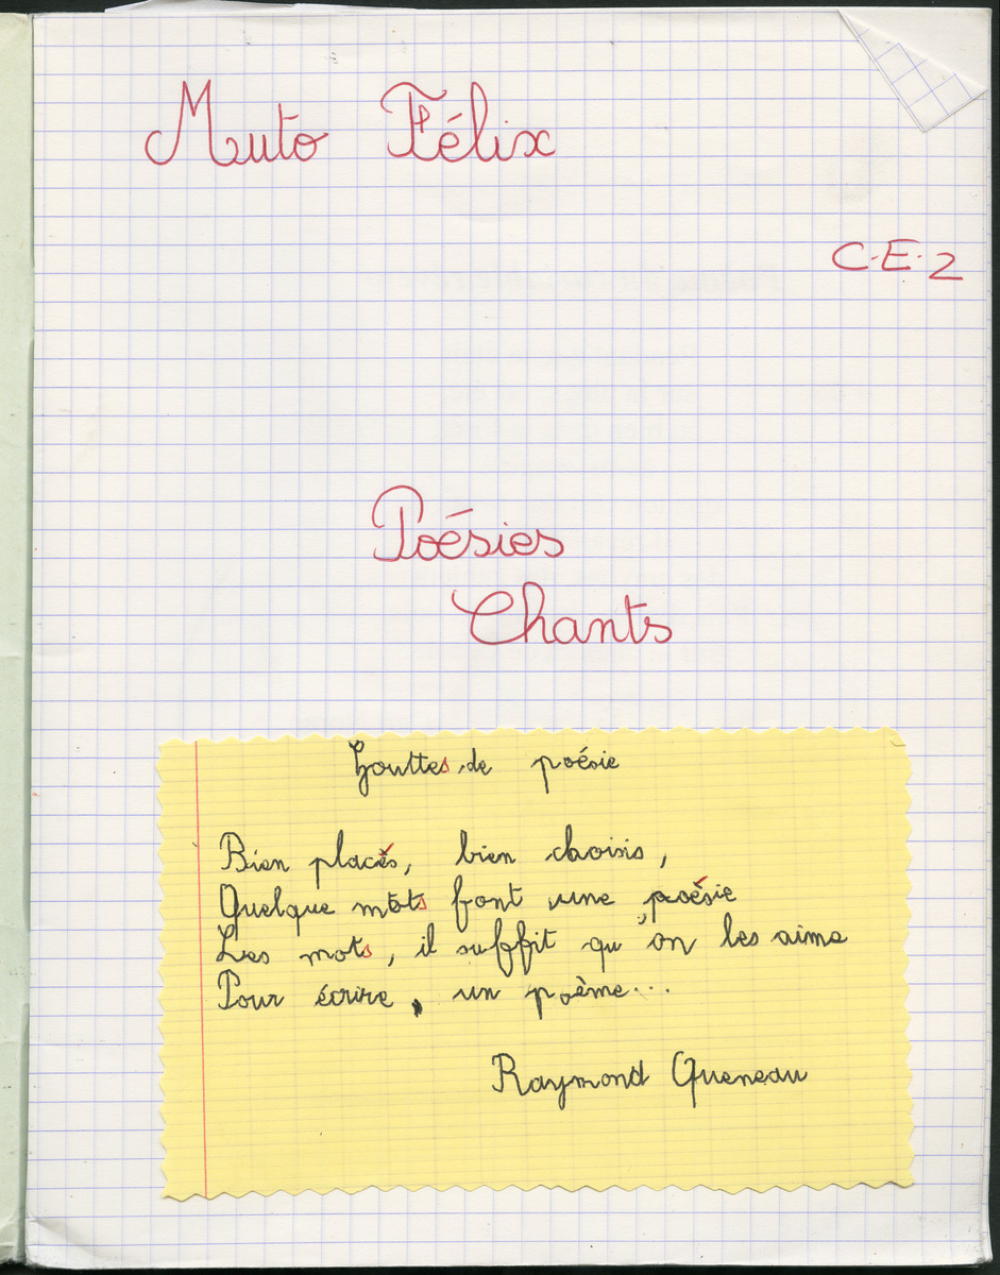 Muto Félix
C.E.2
Poésies
Chants
Gouttes de poésie
Bien placés, bien choisis,
Quelque mots font une poésie
Les mots, il suffit qu'on les aime
Pour écrire, un poème...
Raymond Queneau